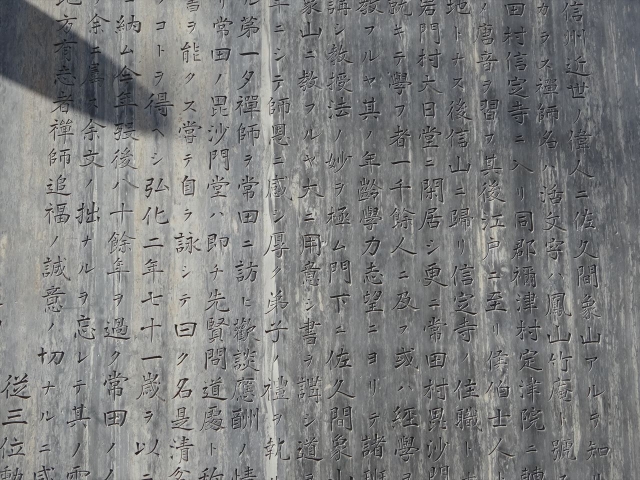 信州近世ノ偉人ニ佐久間象山アルヲ知
カラス禪師名ハ活文字ハ鳳山竹庵ト號ス
田村信定寺ニ入リ同郡禰津村定津院ニ轉
唐音ヲ習フ其後江戸ニ至リ儋伯士人
地トナス後信山ニ歸リ信定寺ノ住職ト
岩門村大日堂ニ閑居シ更ニ常田村毘沙門
就キテ學フ者一千餘人ニ及フ或ハ經學ヲ
教フルヤ其ノ年齡學力志望ニヨリテ諸
講シ教授法ノ妙ヲ極ム門下ニ佐久間象山
象山ニ教フルヤ大ニ用意シ書ヲ講シ道
年ニシテ師恩ニ感シ厚ク弟子ノ禮ヲ執
第一タ禪師ヲ常田ニ訪ヒ歡談應酬ノ情
リ常田ノ毘沙門堂ハ即チ先賢問道處ト称
書ヲ能クス嘗テ自ラ詠シテ曰ク名是清
コトヲ得ヘシ弘化二年七十一歳ヲ以
納ム今年弦後八十餘年ヲ過ク常田ノ
余ニ文ノ拙ナルヲ忘レテ其ノ
地方有志者禪師追福ノ誠意ノ切ナルニ感
従三位勲